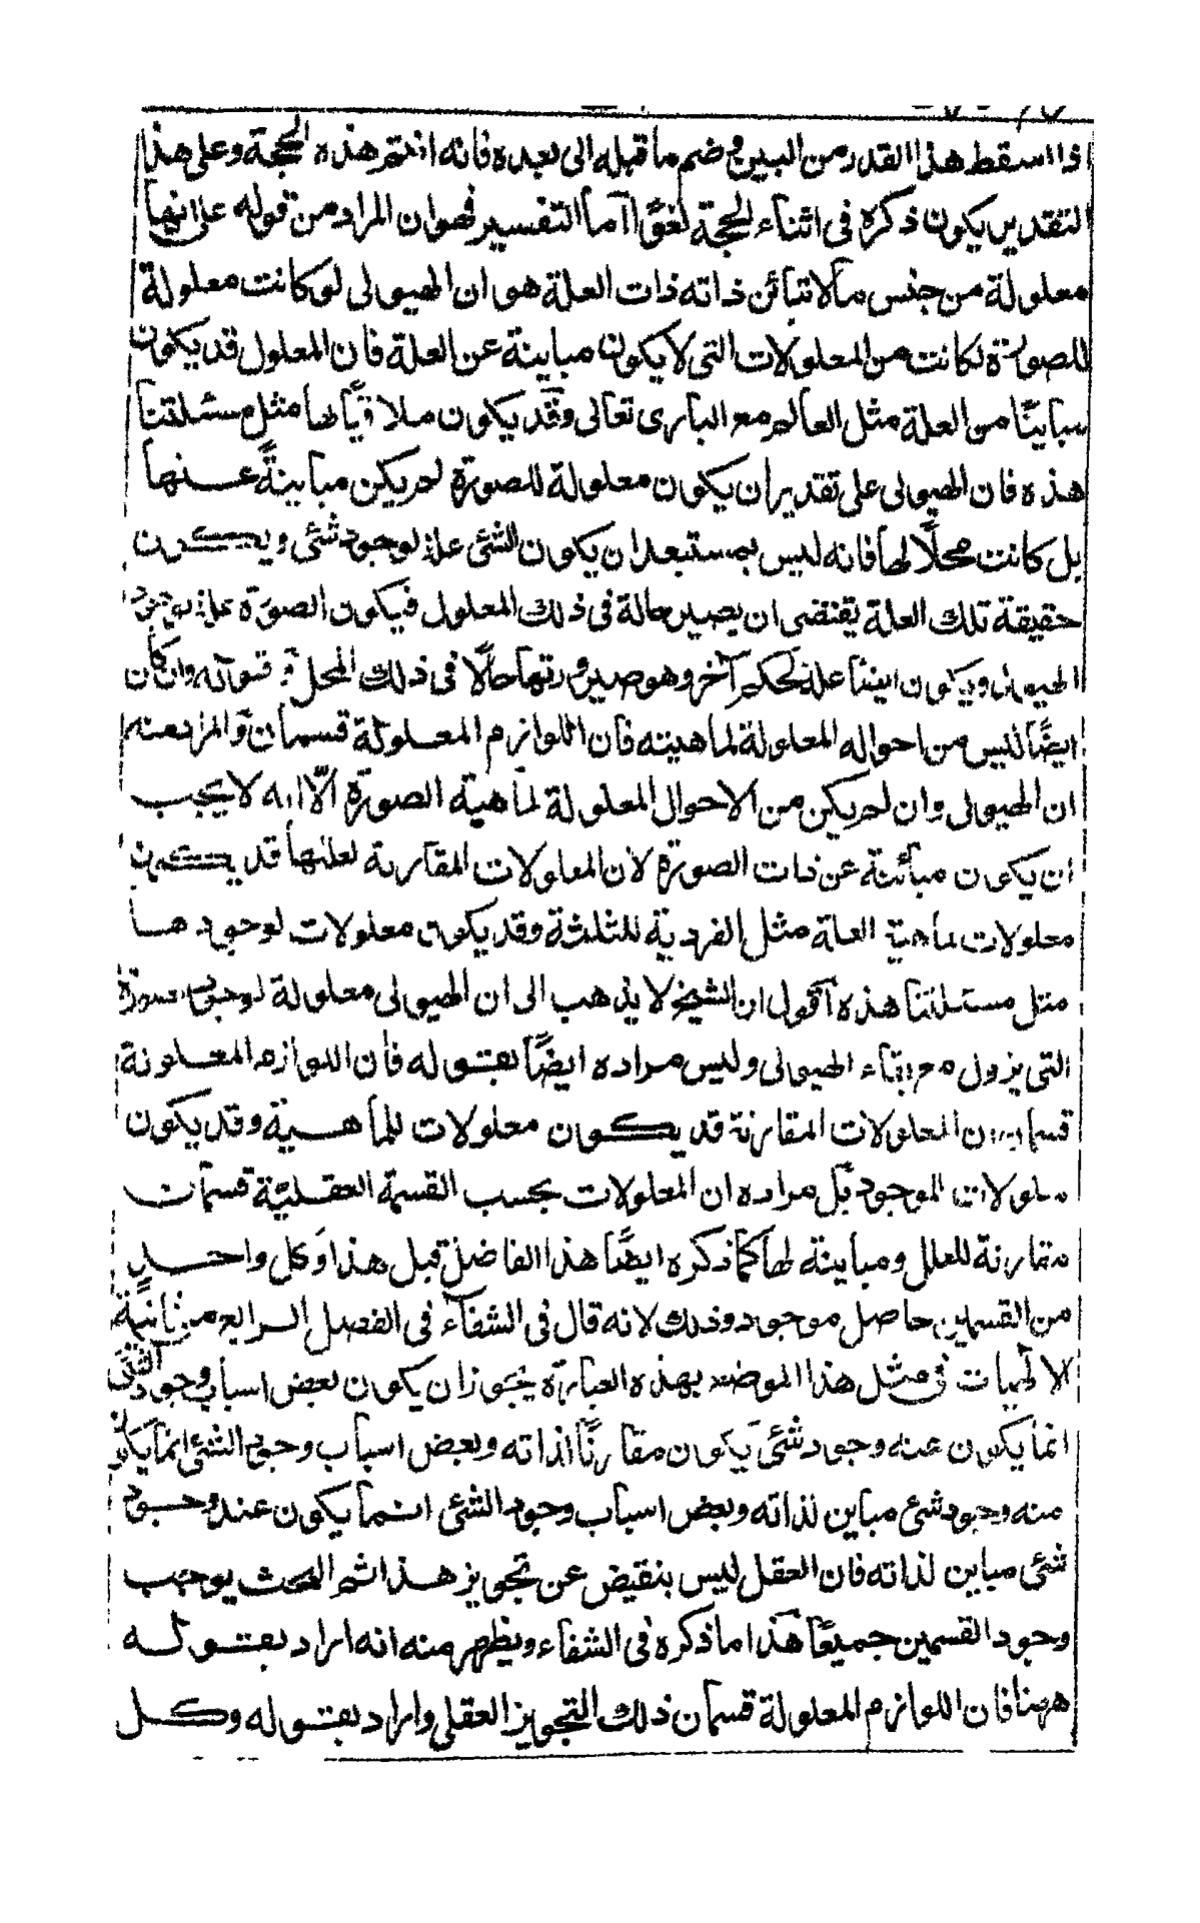 اذا اسقط هذا القدر من البين وضم ما قبله الى بعده فانه انتم هذه الحجة وعلى هذا
التقدير يكون ذكره فى اثناء الحجة لغوًا آما التفسير فهو ان المراد من قوله على انها
معلولة من جنس ما لا تبائن ذاته ذات العلة هو ان الهيولى لو كانت معلولة
للصورة لكانت من المعلولات التى لا يكون مباينة عن العلة فان المعلول قد يكون
مباينًا من العلة مثل العالم مع البارى تعالى وقد يكون ملاقيًا لها مثل مسئلتنا
هذه فان الهيولى على تقدير ان يكون معلولة للصورة لم يكن مباينةً عنها
بل كانت محلًّا لها فانه ليس بمستبعد ان يكون الشئ علة لوجود شئ ويكون
حقيقة تلك العلة يقتضى ان يصير حالة فى ذلك المعلول فيكون الصورة علة لوجود
الهيولى ويكون ايضًا علة لحكم آخر وهو صيرورتها حالًا فى ذلك المحل قوله وان كان
ايضًا ليس من احواله المعلولة لماهيته فان اللوازم المعلولة قسمان والمراد منه
ان الهيولى وان لم يكن من الاحوال المعلولة لماهية الصورة الّا انه لا يجب
ان يكون مبائنة عن ذات الصورة لان المعلولات المقارنة لعلتها قد يكون
معلولات لماهية العلة مثل الفردية للثلثة وقد يكون معلولات لوجودها
مثل مسئلتنا هذه آقول ان الشيخ لا يذهب الى ان الهيولى معلولة لوجود صورة
التى يزول مع بقاء الهيولى وليس مراده ايضًا بقوله فان اللوازم المعلولة
قسمان ان المعلولات المقارنة قد يكون معلولات للماهية وقد يكون
معلولات الموجود بل مراده ان المعلولات بحسب القسمة العقليّة قسمان
مقارنة للعلل ومباينة لها كما ذكره ايضًا هذا الفاضل قبل هذا وكل واحد
من القسمين حاصل موجود وذلك لانه قال فى الشفاء فى الفصل الرابع من ثانية
الالهيات فى مثل هذا الموضع بهذه العبارة يجوز ان يكون بعض اسباب وجود الشئ
انما يكون عنه وجود شئ يكون مقارنًا لذاته وبعض اسباب وجود الشئ انما يكون
منه وجود شئ مباين لذاته وبعض اسباب وجود الشئ انما يكون عند وجود
شئ مباين لذاته فان العقل ليس بنقيض عن تجويز هذا ثم البحث يوجب
وجود القسمين جميعًا هذا ما ذكره فى الشفاء ويظهر منه انه اراد بقوله
ههنا فان اللوازم المعلولة قسمان ذلك التجويز العقلى واراد بقوله وكل